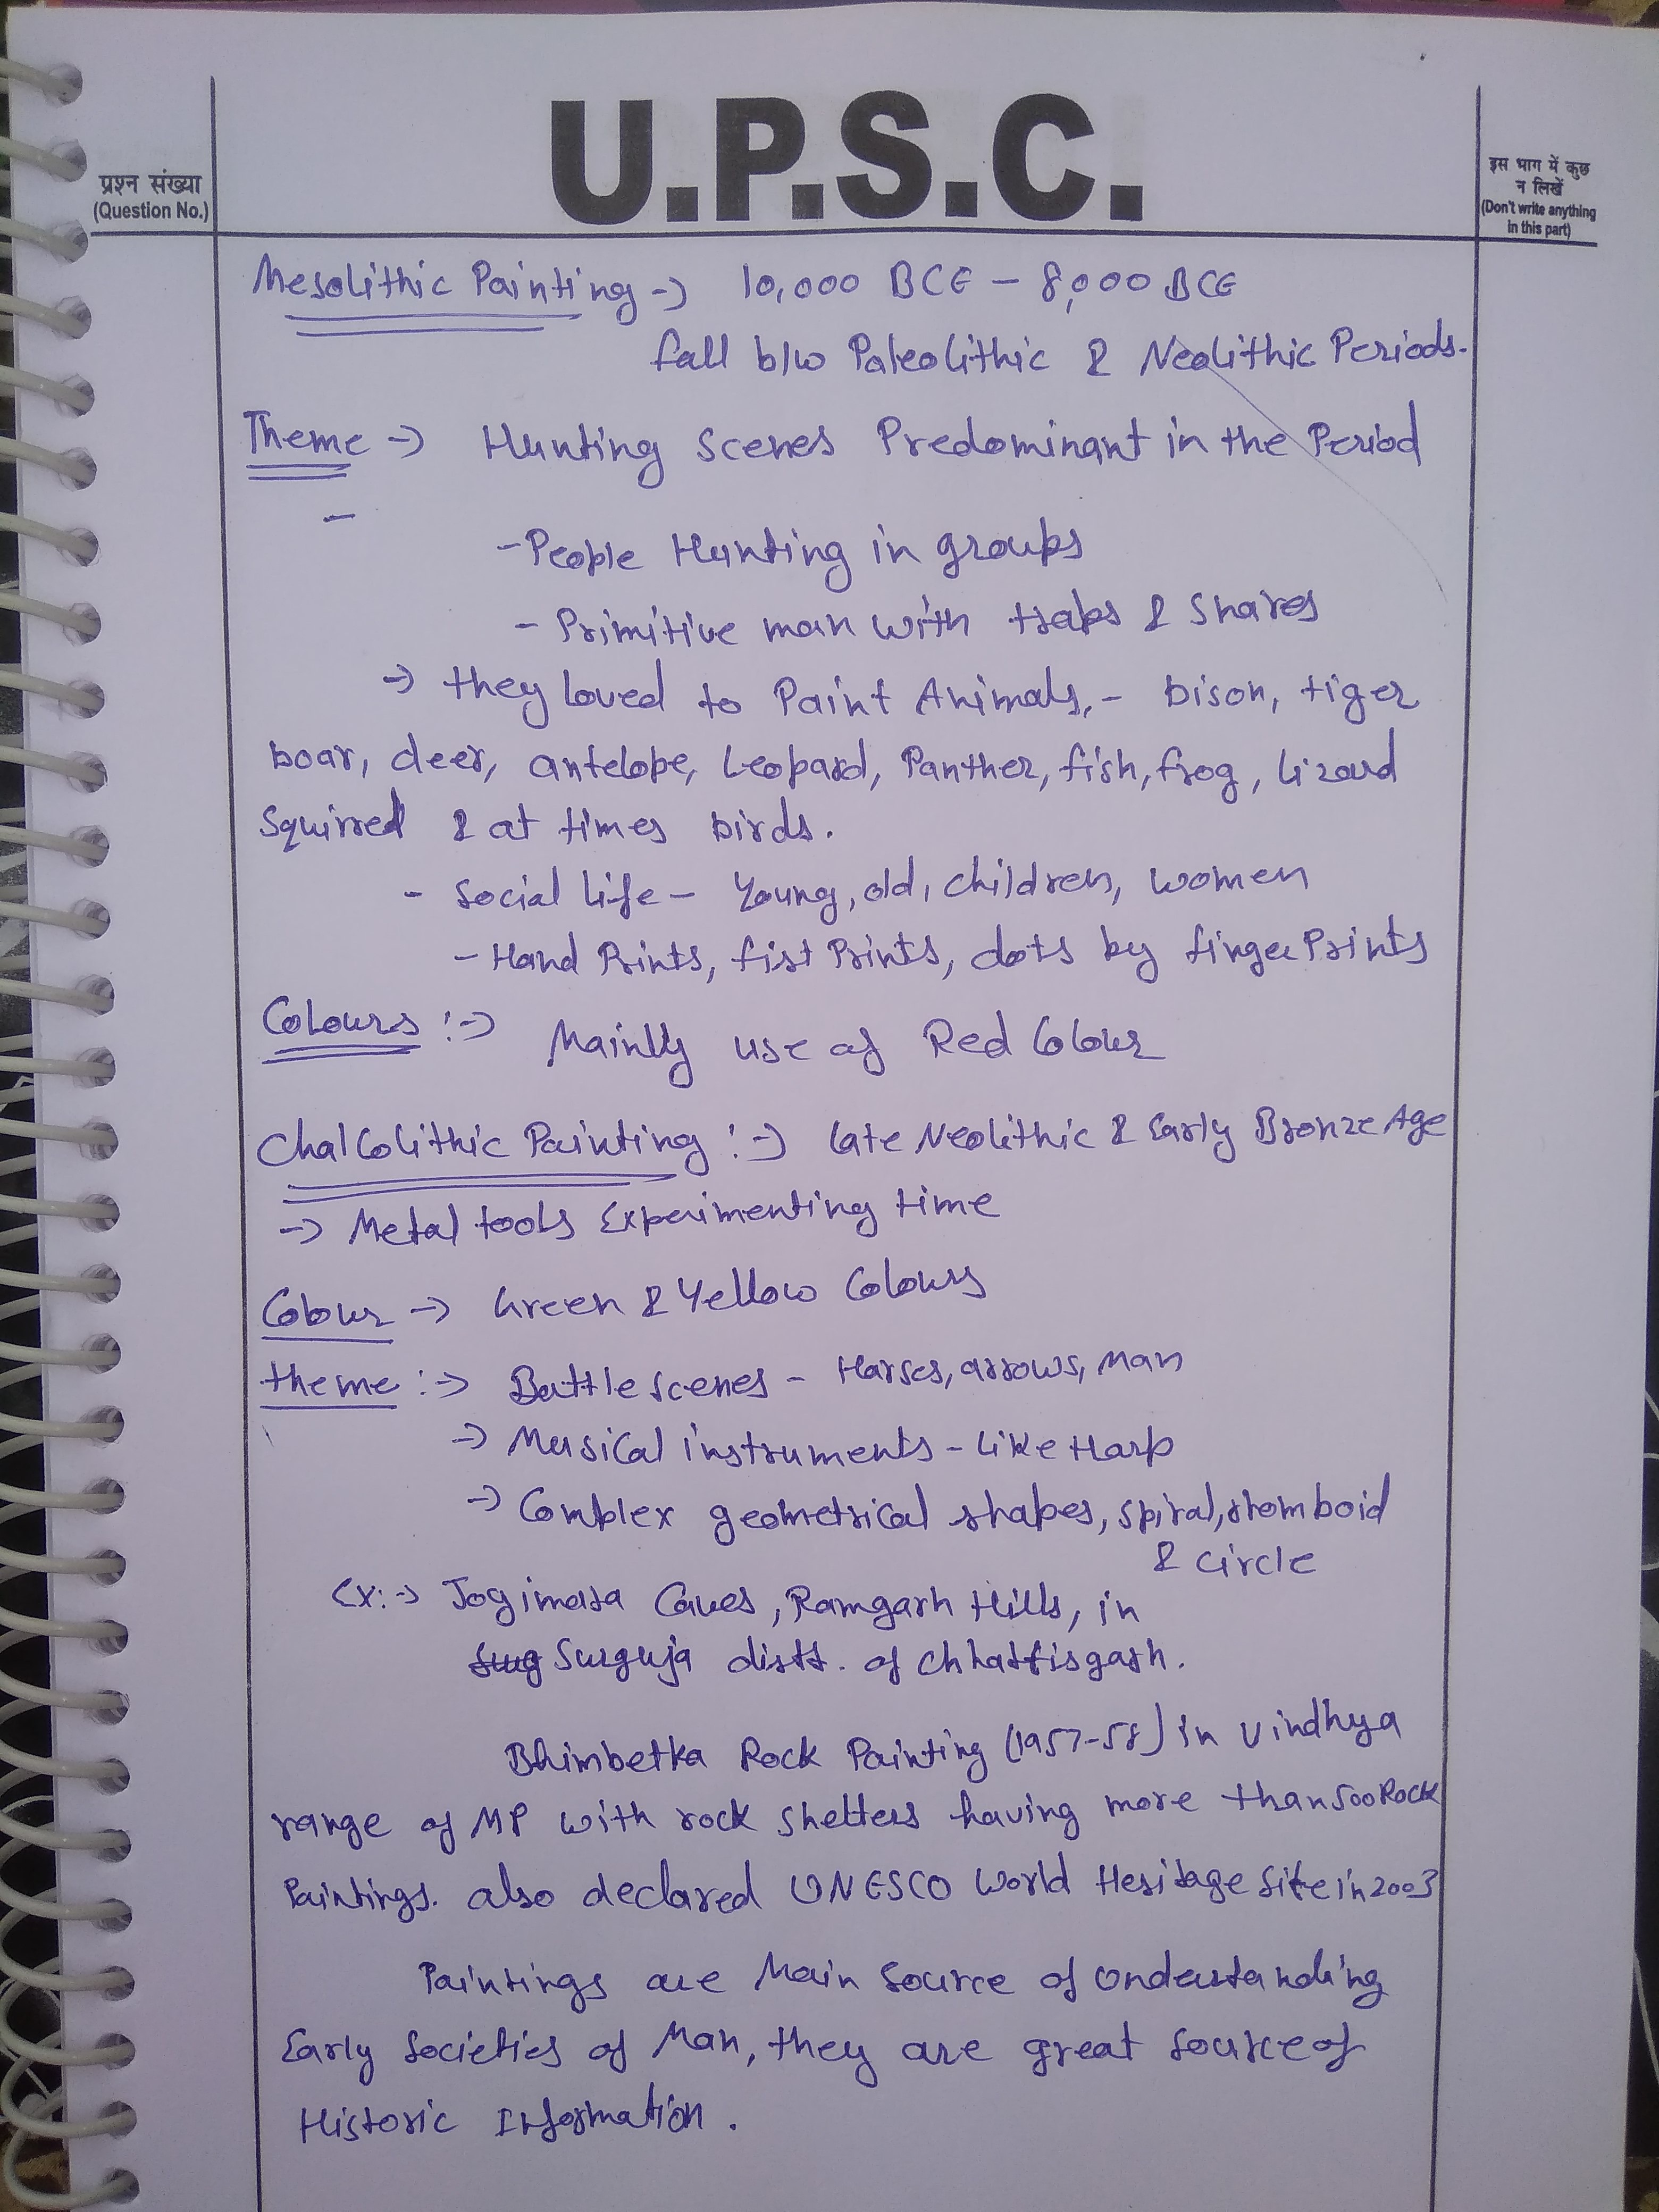 U.P.S.C.
प्रश्न संख्या
(Question No.)
इस भाग में कुछ
न लिखें
(Don't write anything
in this part)
Mesolithic Painting -> 10,000 BCE - 8,000 BCE
fall b/w Paleolithic & Neolithic Periods.
Theme -> Hunting Scenes Predominant in the Period
-
- People Hunting in groups
- Primitive man with traps & Snares
-> they loved to Paint Animals, - bison, tiger
boar, deer, antelope, leopard, Panther, fish, frog, lizard
Squirrel & at times birds.
- Social life - Young, old, children, women
- Hand Prints, fist Prints, dots by fingerPrints
Colours :-> Mainly use of Red Colour
Chalcolithic Painting :-> late Neolithic & Early Bronze Age
-> Metal tools Experimenting time
Colour -> Green & Yellow Colours
theme :-> Battle scenes - Harses, arrows, Man
-> Musical instruments - like Harp
-> Complex geometrical shapes, spiral, rhomboid
& Circle
Ex:-> Jogimara Caves, Ramgarh Hills, in
Surguja distt. of Chhattisgarh.
Bhimbetka Rock Painting (1957-58) in Vindhya
range of MP with rock shelters having more than 500 Rock
Paintings. also declared UNESCO World Heritage Site in 2003
Paintings are Main Source of Understanding
Early Societies of Man, they are great source of
Historic Information.